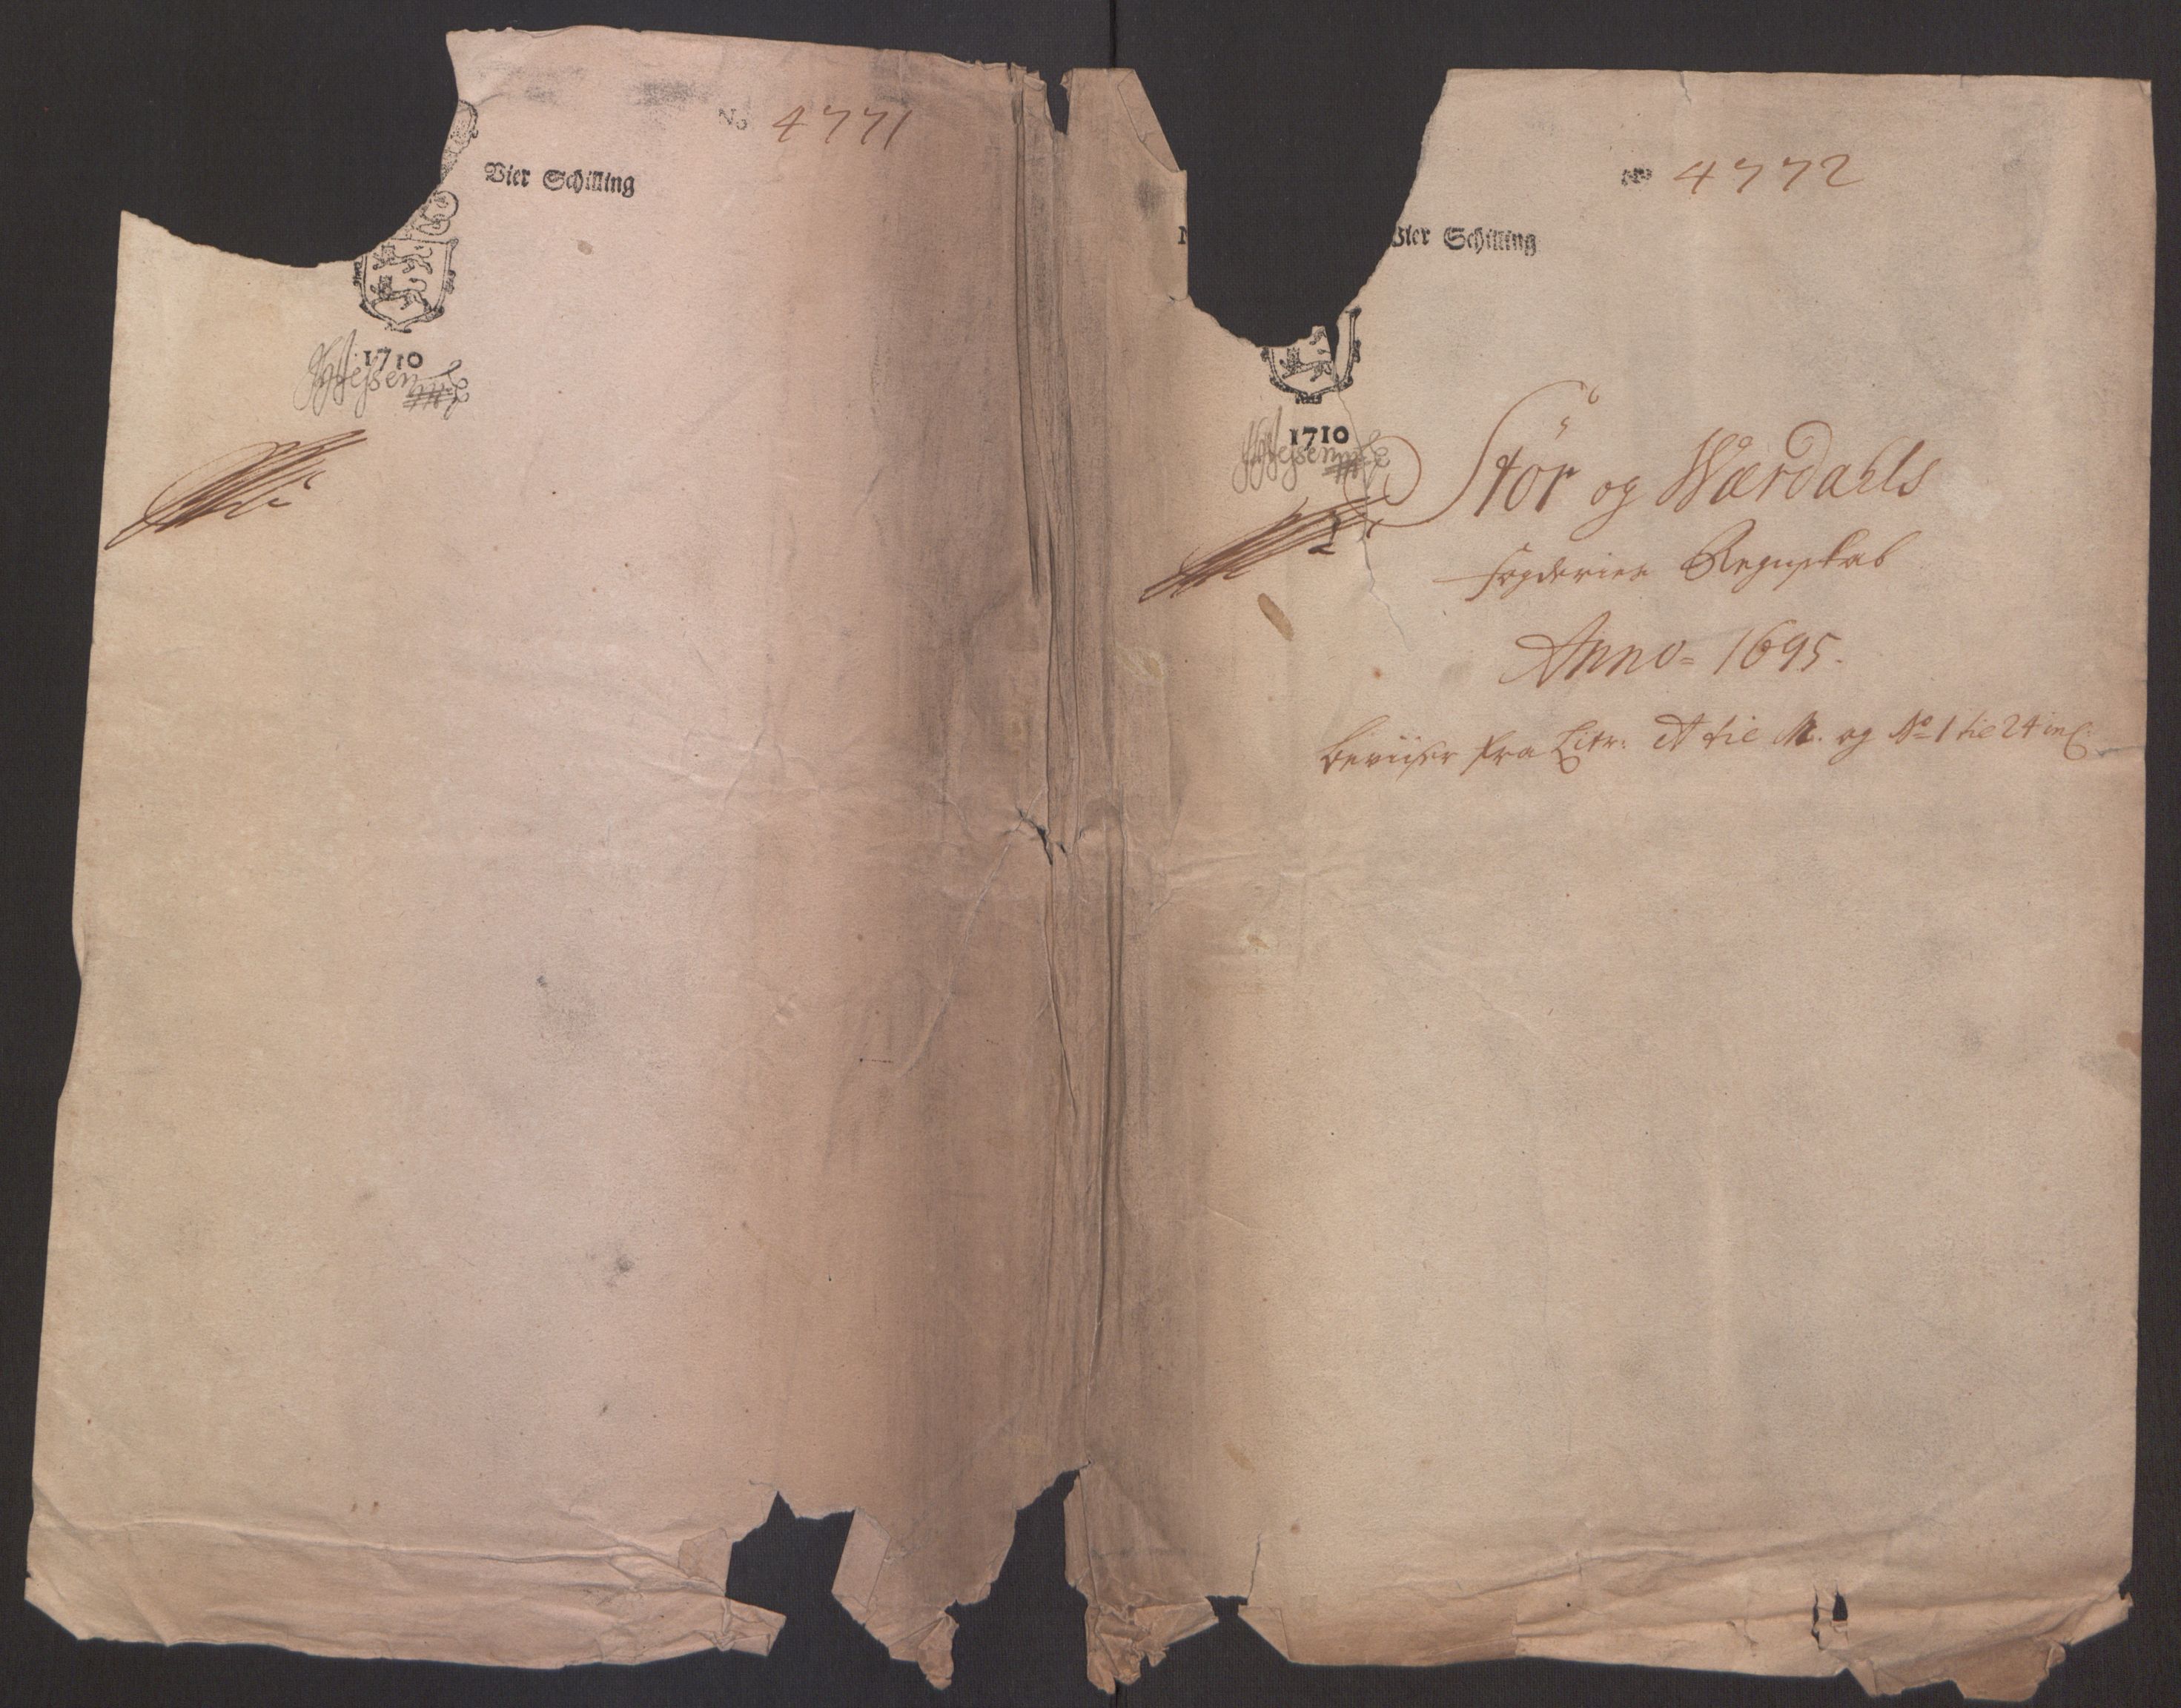 No 4771
Vier Schilling
1710
No 4772
Vier Schilling
1710
Stör og Wærdahls
fogderies Regnskab
Anno = 1695.
beviiser fra Litr: A til M. og No 1 til 24 incl: